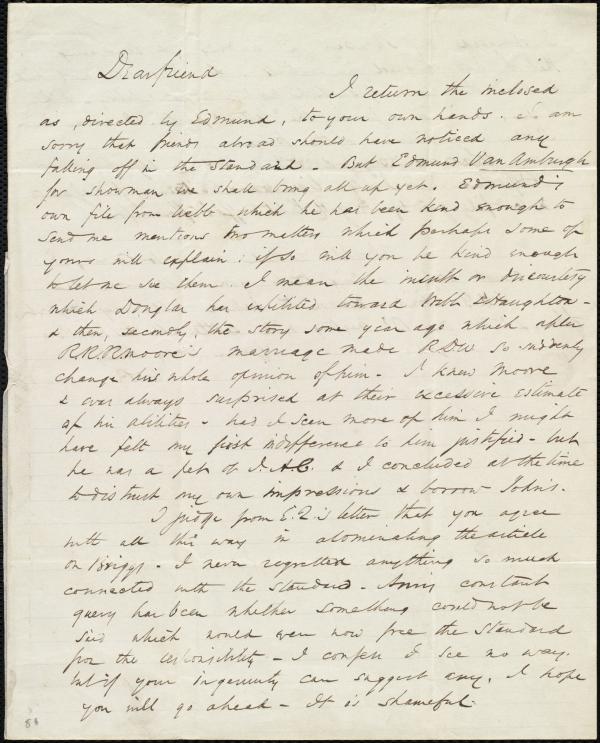 Dear friend
I return the inclosed
as, directed by Edmund, to your own hands. I am
sorry that friends abroad should have noticed any
falling off in the Standard - But Edmund Van Amburgh
for showman we shall bring all up yet. Edmund's
own file from Webb which he has been kind enough to
send me mentions two matters which perhaps some of
yours will explain: if so will you be kind enough
to let me see them. I mean the insult or discourtesy
which Douglas has exhibited toward Webb & Haughton -
& then, secondly, the story some year ago which after
R R R Moore's marriage made RDW so suddenly
change his whole opinion of him - I knew Moore
& was always surprised at their excessive estimate
of his abilities - had I seen more of him I might
have felt my first indifference to him justified - but
he was a pet of J.A.C. & I concluded at the time
to distrust my own impressions & borrow John's.
I judge from E.Q.'s letter that you agree
with all this way in abominating the article
on Briggs - I never regretted anything so much
connected with the Standard - Ann's constant
query has been whether something could not be
said which would even now free the Standard
from the responsibility - I confess I see no way.
but if your ingenuity can suggest any, I hope
you will go ahead - It is shameful